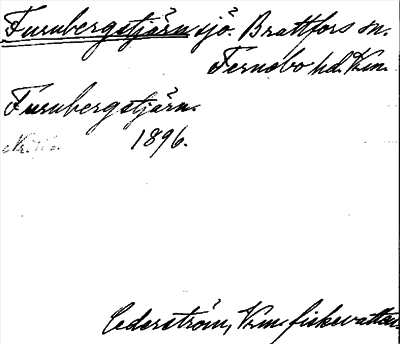 Furubergstjärn, sjö. Brattfors sn.
Fernebo hd. Vrm.
Furubergstjärn.
1896.
Cederström, Vrm. fiskevatten